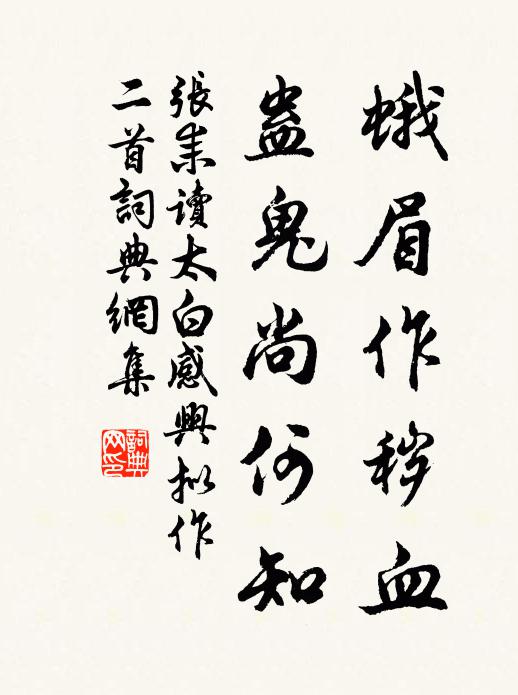 蛾眉作秽血
蛊鬼尚何知
張耒讀太白感興拟作
二首詞典網集
詞典网印